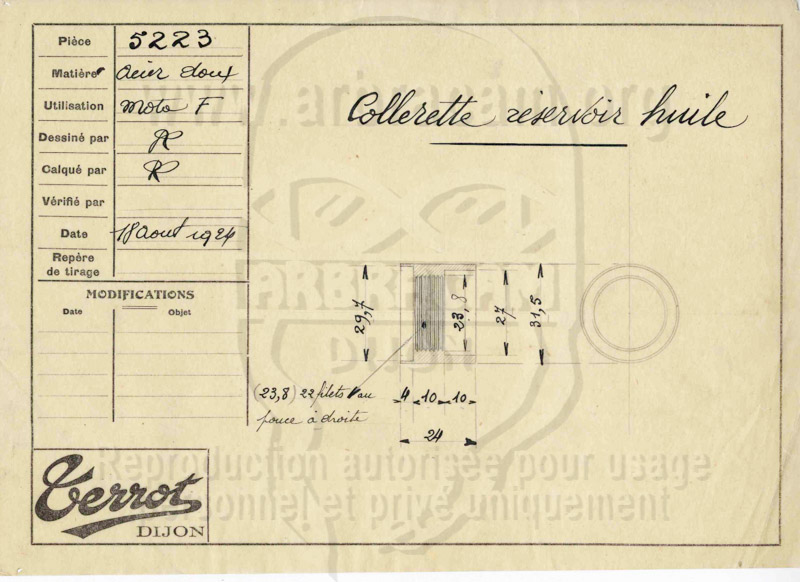 Pièce 5223
Matière acier doux
Utilisation Moto F
Dessiné par
Calqué par
Vérifié par
Date 18 Aout 1924
Repère
de tirage
MODIFICATIONS
Date Objet
Collerette réservoir huile
29,7
23,8
27
31,5
4 10 10
24
(23,8) 22 filets au
pouce à droite
Terrot
DIJON
www.arbracam.org
ARBRACAM
DIJON
Reproduction autorisée pour usage
personnel et privé uniquement